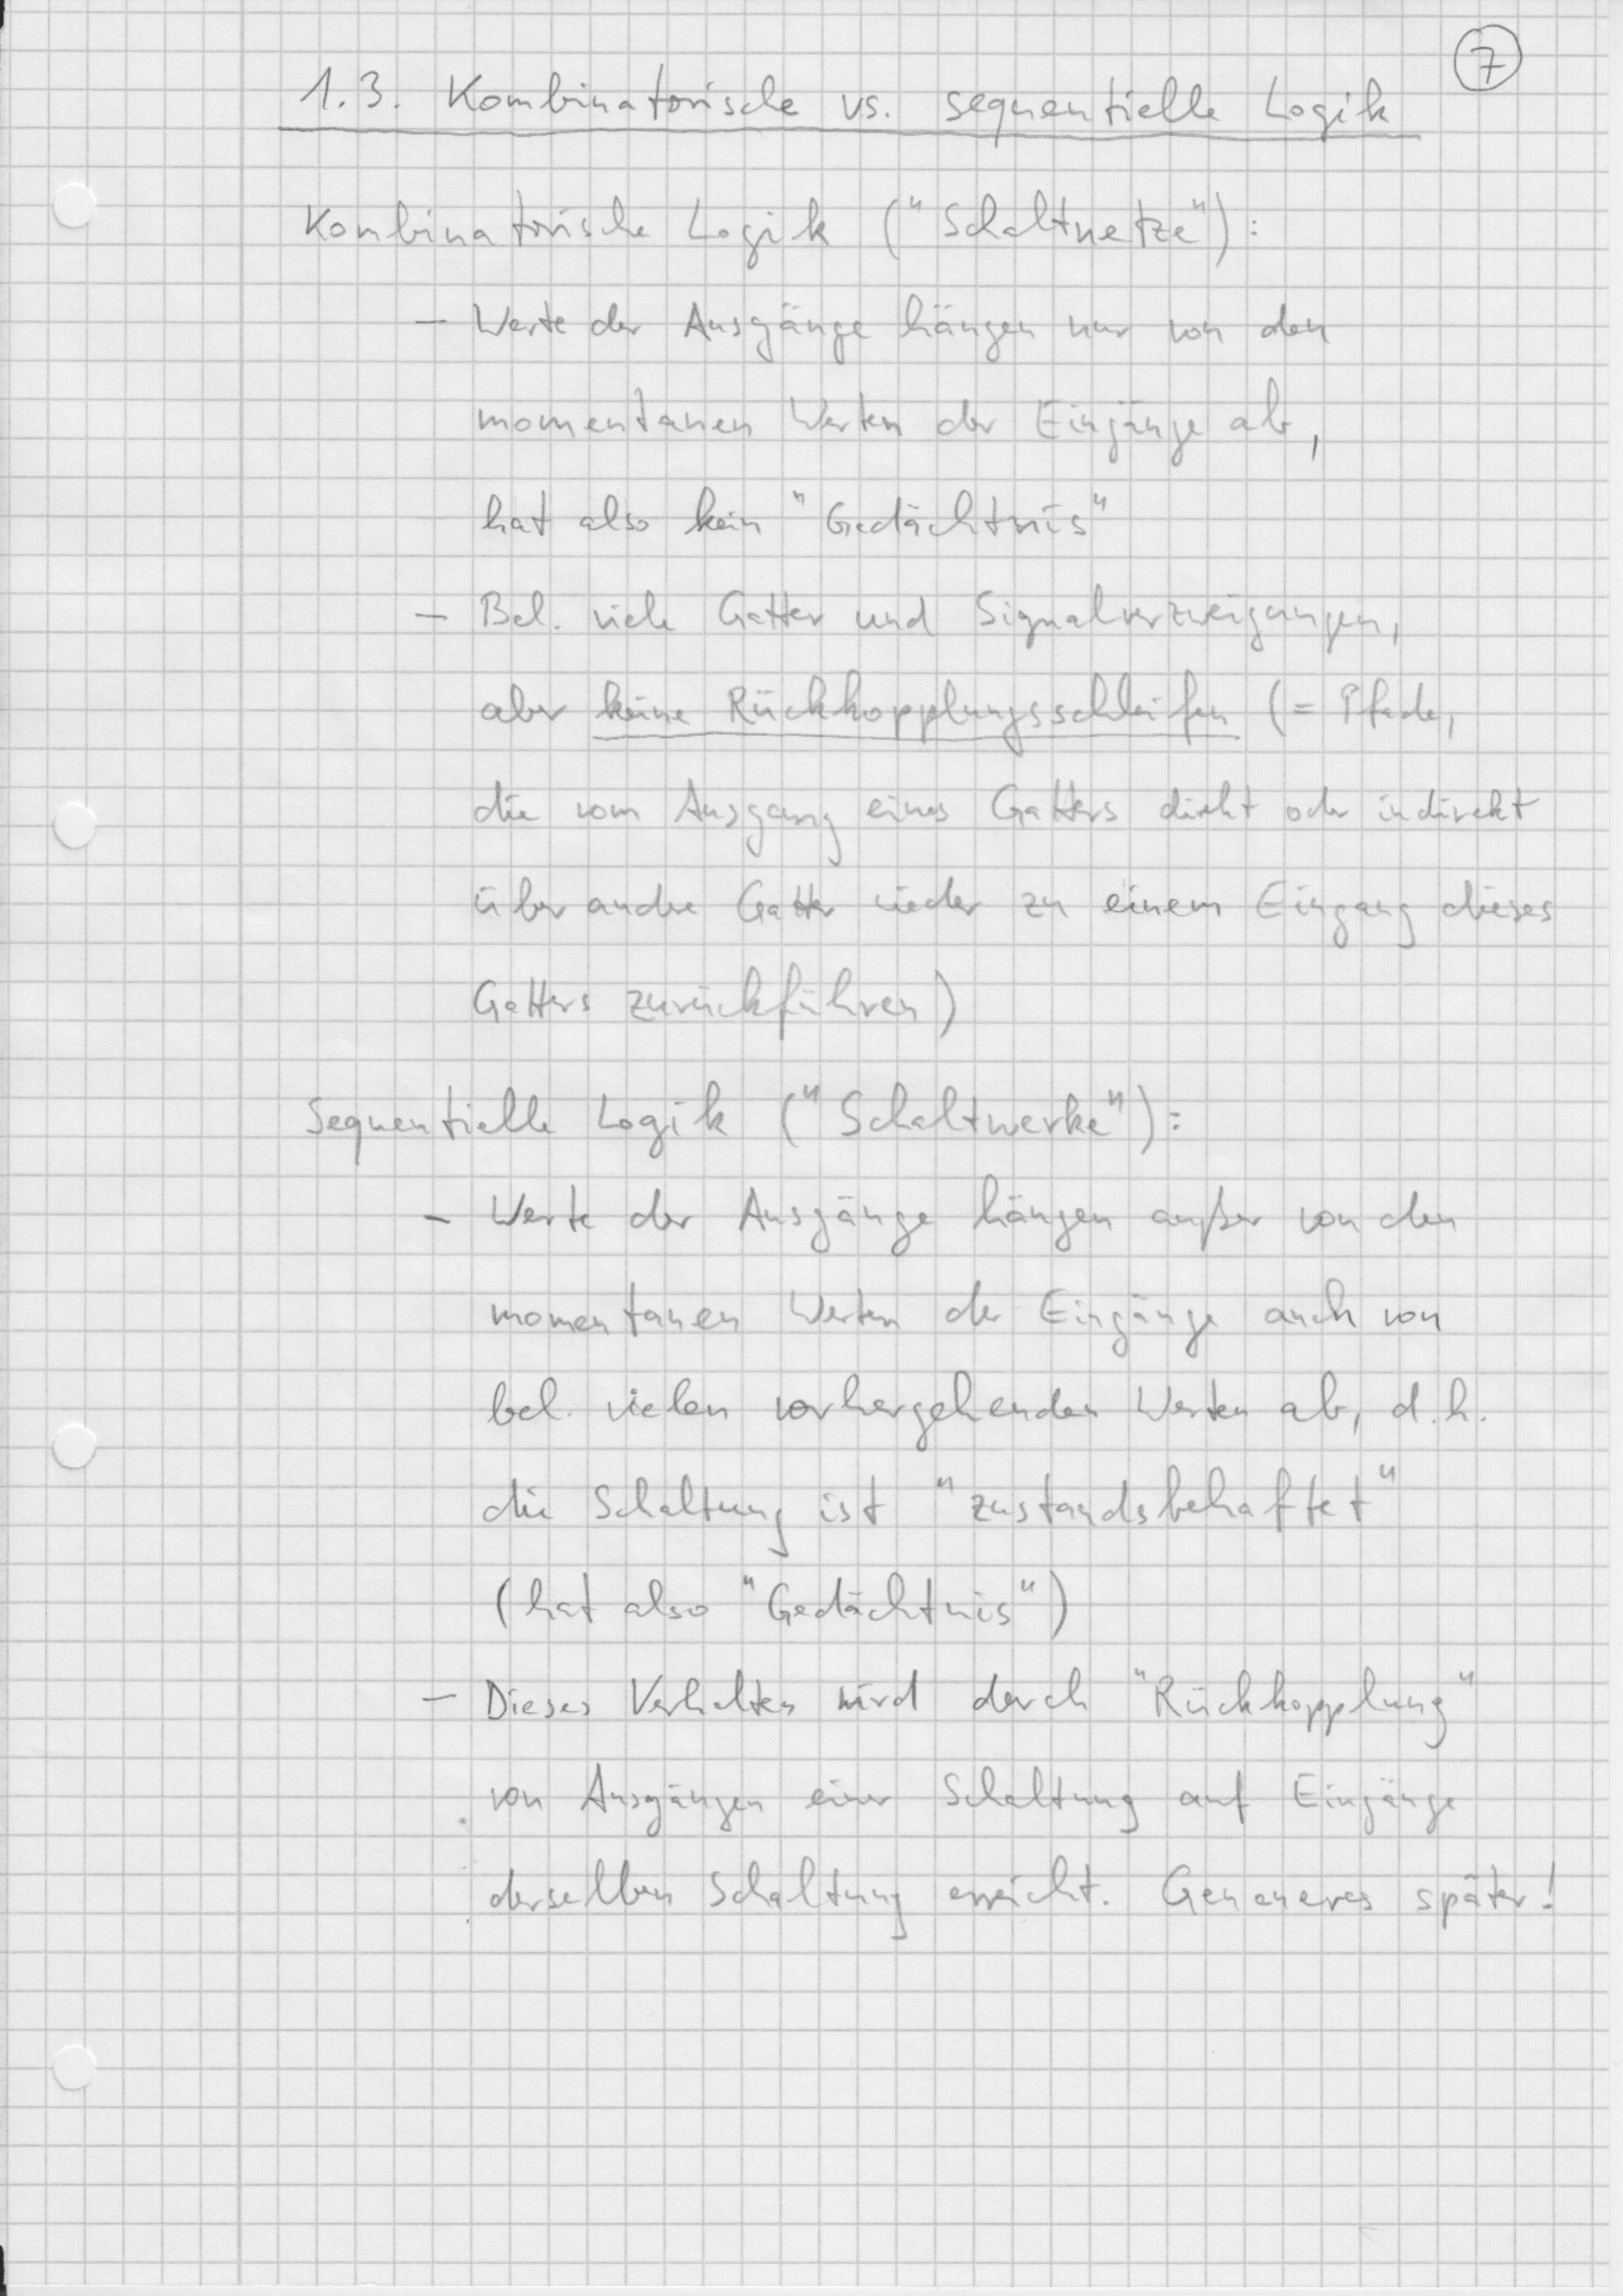 7
1.3. Kombinatorische vs. sequentielle Logik
Kombinatorische Logik ("Schaltnetze"):
- Werte der Ausgänge hängen nur von den
momentanen Werten der Eingänge ab,
hat also kein "Gedächtnis"
- Bel. viele Gatter und Signalverzweigungen,
aber keine Rückkopplungsschleifen (= Pfade,
die vom Ausgang eines Gatters direkt oder indirekt
über andere Gatter wieder zu einem Eingang dieses
Gatters zurückführen)
Sequentielle Logik ("Schaltwerke"):
- Werte der Ausgänge hängen außer von den
momentanen Werten der Eingänge auch von
bel. vielen vorhergehenden Werten ab, d.h.
die Schaltung ist "zustandsbehaftet"
(hat also "Gedächtnis")
- Dieses Verhalten wird durch "Rückkopplung"
von Ausgängen einer Schaltung auf Eingänge
derselben Schaltung erreicht. Genaueres später!